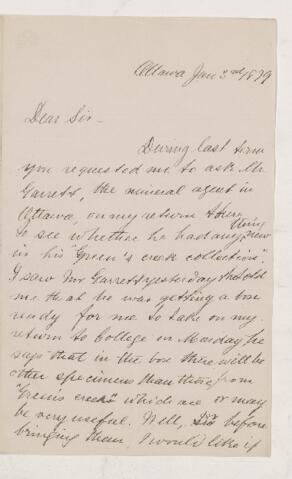 Ottawa Jan 3rd 1879
Dear Sir -
During last term
you requested me to ask Mr
Garrett, the mineral agent in
Ottawa, on my return there,
to see whether he had anything new
in his "Green's creek collection".
I saw Mr Garrett yesterday he told
me that he was getting a box
ready for me to take on my
return to College on Monday he
says that in the box there will be
other specimens than those from
"Green's creek" which are or may
be very useful. Well, Sir before
bringing them, I would like if